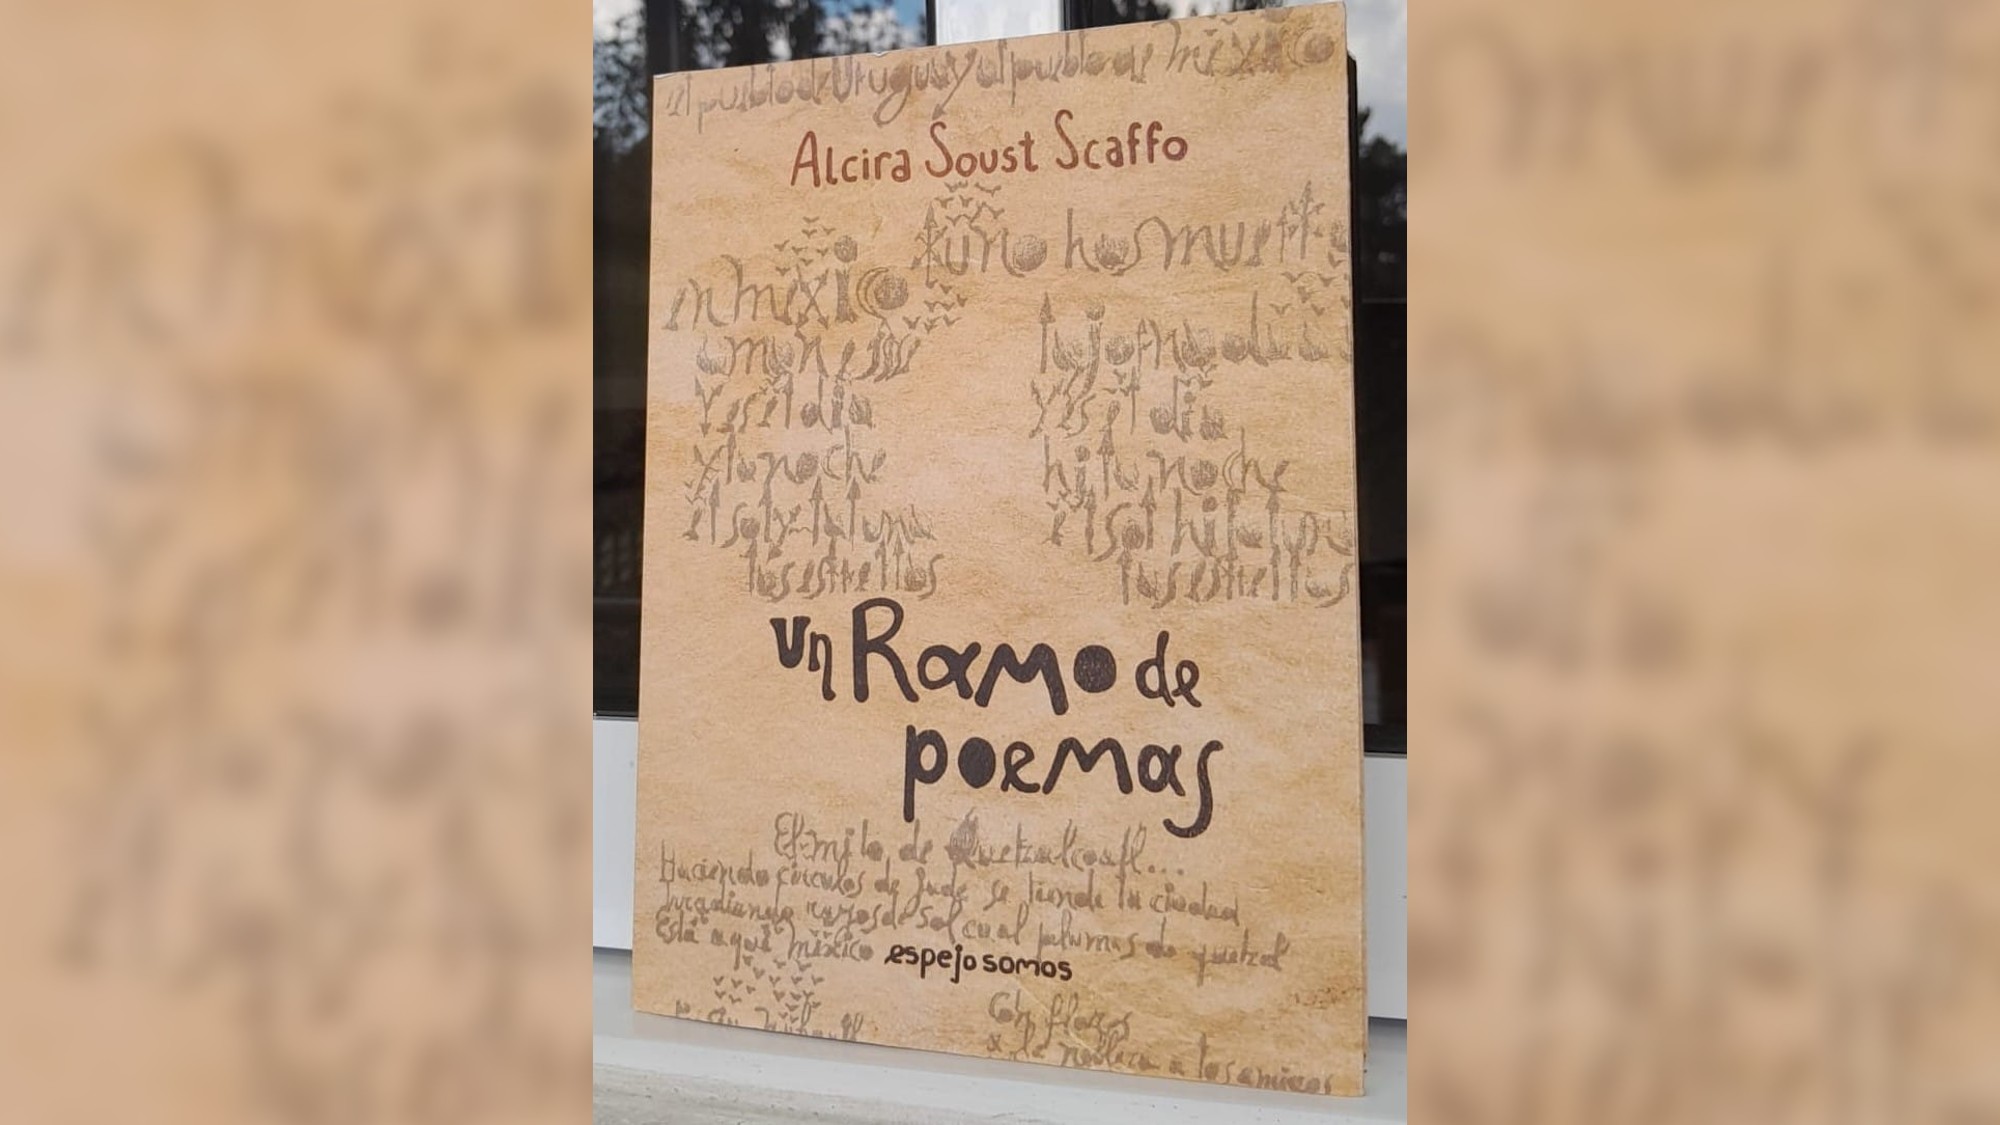 el pueblo de Uruguay al pueblo de México
Alcira Soust Scaffo
tu no has muerto
en México
y es el día
y es el día
y la noche
hi tu noche
el sol y la luna
el sol hi la luna
las estrellas
las estrellas
un Ramo de
poemas
El mito de Quetzalcoatl...
Haciendo círculos de Jade se tiende la ciudad
Irradiando rayos de sol cual plumas de quetzal
Está aquí México
espejo somos
Con flores
nobleza a los amigos